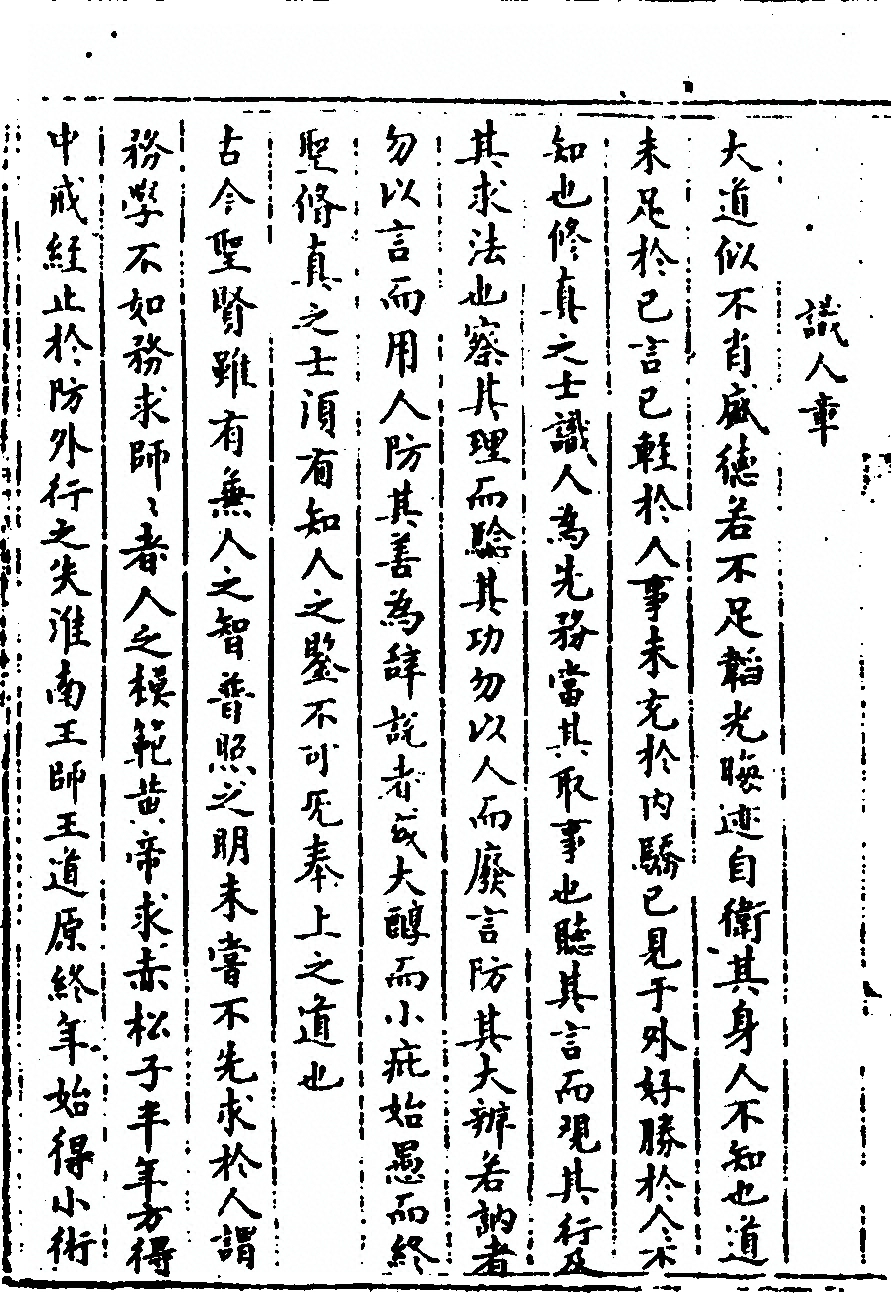 識人事
大道似不肖盛德若不足韜光晦迹自衛其身人不知也道
未足於已言已輕於人事未充於内驕已見于外好勝於人人不
知也修真之士識人為先務當其取事也聽其言而覌其行及
其求法也察其理而騐其功勿以人而廢言防其大辨若訥者
勿以言而用人防其善為辞説者或大醇而小疵始愚而終
聖脩真之士須有知人之鑒不可旡奉上之道也
古今聖賢雖有兼人之智普照之明未嘗不先求於人謂
務學不如務求師〻者人之模範黄帝求赤松子半年方得
中戒經止於防外行之失淮南王師王道原終年始得小術